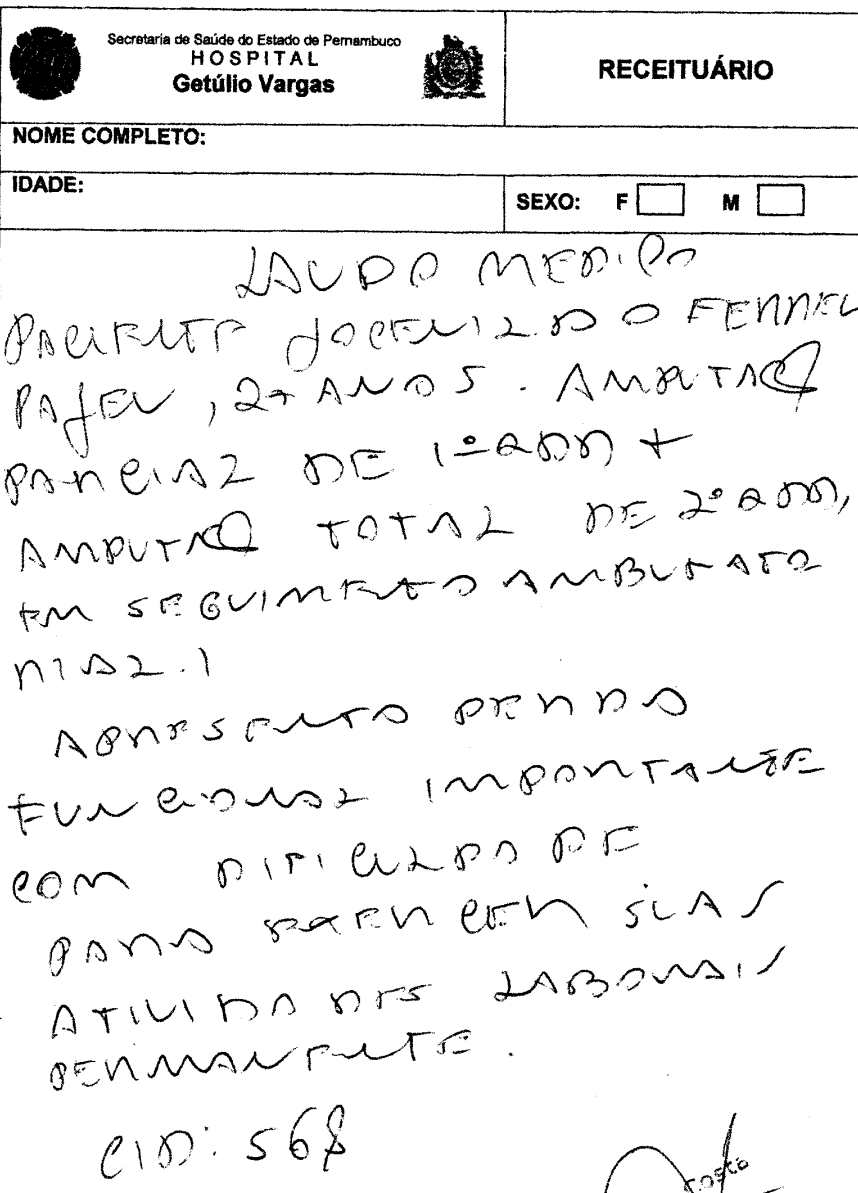 Secretaria de Saúde do Estado de Pernambuco
HOSPITAL
Getúlio Vargas
RECEITUÁRIO
NOME COMPLETO:
IDADE:
SEXO: F M
LAUDO MEDICO
PACIENTE
, 27 ANOS. AMPUTAÇÃO
PARCIAL DE 1º QDD +
AMPUTAÇÃO TOTAL DE 2º QDD,
EM SEGUIMENTO AMBULATO
RIAL.
APRESENTA PERDA
FUNCIONAL IMPORTANTE
COM DIFICULDADE
PARA EXERCER SUAS
ATIVIDADES LABORAIS
PERMANENTE.
CID: S68